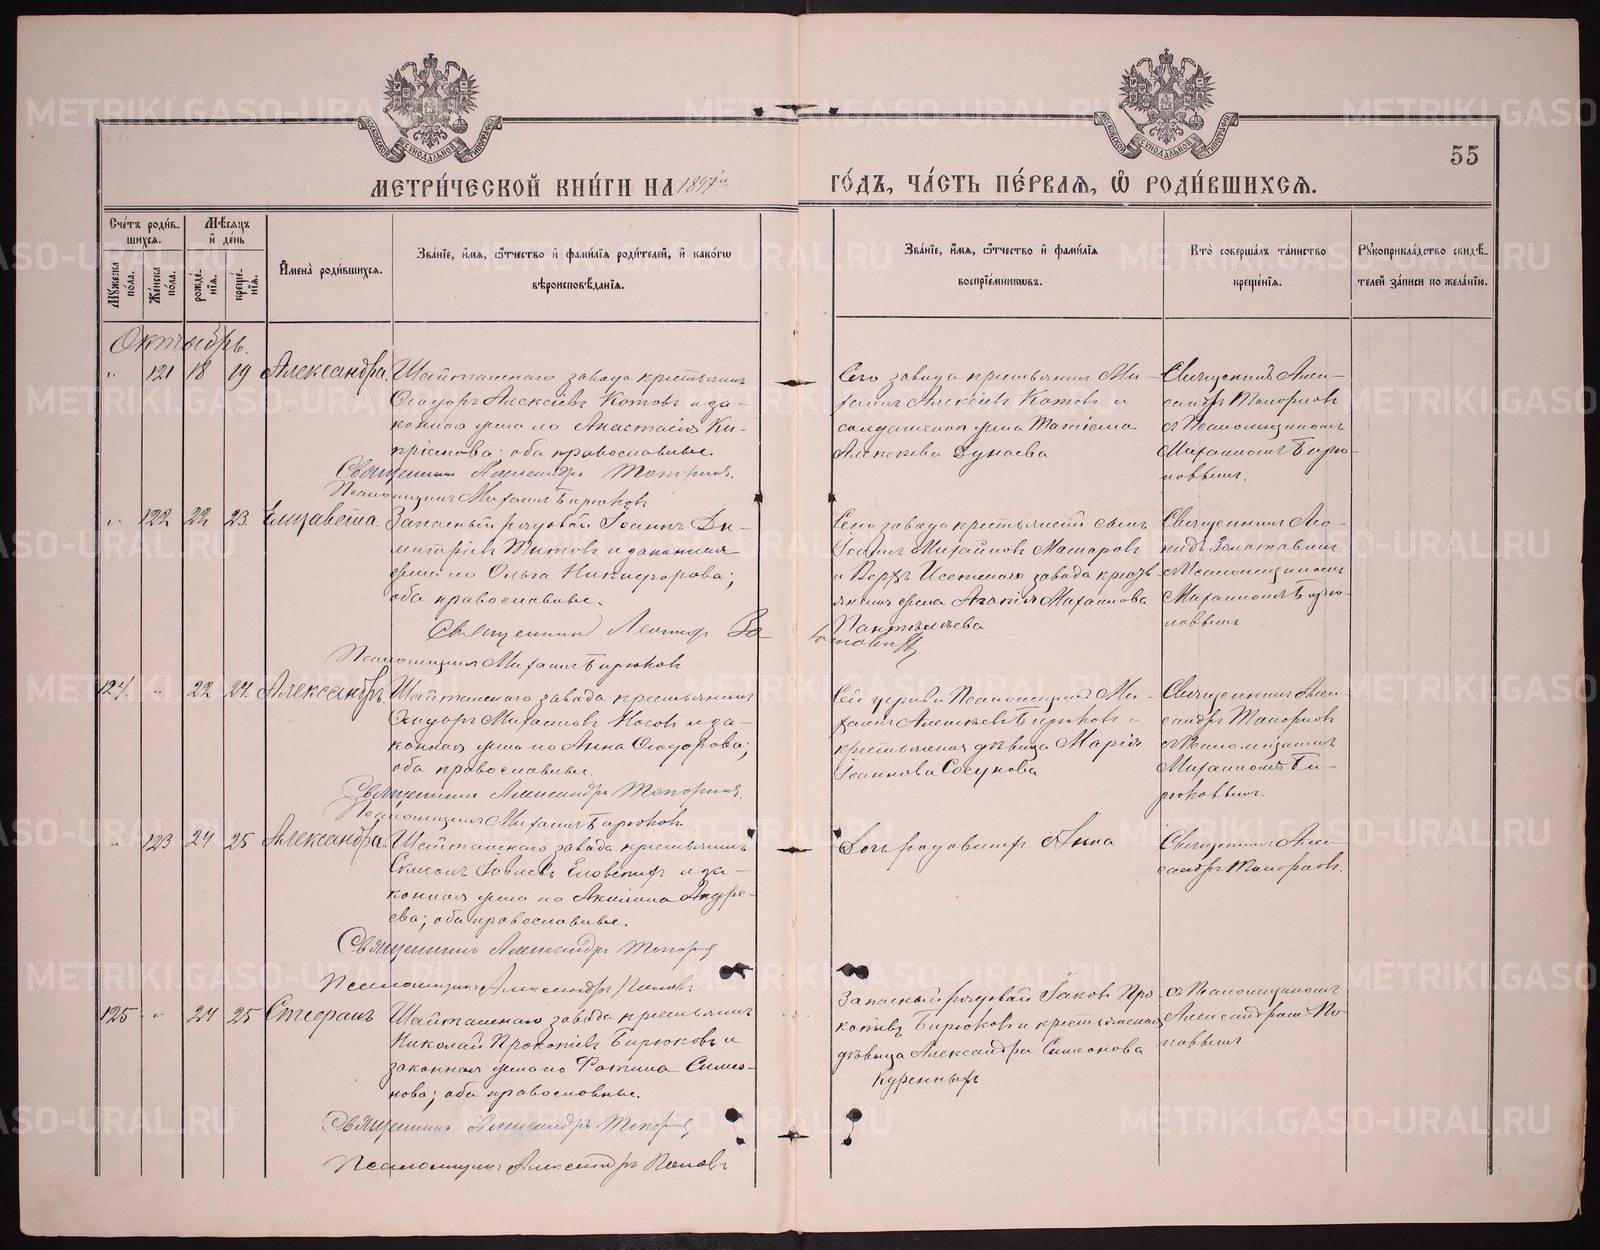 МЕТРИЧЕСКОЙ КНИГИ НА 1897й
ГОДЪ, ЧАСТЬ ПЕРВАЯ, Ѿ РОДИВШИХСЯ.
55
Счетъ родив-
шихся.
Мѣсяцъ
и день
Мужеска
пола.
Женска
пола.
рожде-
нія.
креще-
нія.
Имена родившихся.
Званіе, имя, ѿтчество и фамилія родителей, и какогѡ
вѣроисповѣданія.
Званіе, имя, ѿтчество и фамилія
воспріемниковъ.
Кто совершалъ таинство
крещенія.
Рукоприкладство свидѣ-
телей записи по желанію.
Октябрь.
121 18 19 Александра.
Шайтанскаго завода крестьянинъ
Ѳеодоръ Алексѣевъ Котовъ и за-
конная жена его Анастасія Ки-
пріянова; оба православные.
Священникъ Александръ Топорковъ.
Псаломщикъ Михаилъ Бирюковъ
Сего завода крестьянинъ Ми-
хаилъ Алексѣевъ Котовъ и
солдатская жена Татіана
Алексѣева Дунаева
Священникъ Алек-
сандръ Топорковъ
съ Псаломщикомъ
Михаиломъ Бирю-
ковымъ.
122 22 23 Елизавета.
Запасный рядовой Іоаннъ Ди-
митріевъ Титовъ и законная
жена его Ольга Никифорова;
оба православные.
Священникъ Леонидъ Зо-
лотавинъ
Псаломщикъ Михаилъ Бирюковъ
Сего завода крестьянскій сынъ
Іоаннъ Михайловъ
и Верхъ Исетскаго завода кресть-
янская жена Агапія Михаилова
Пантелѣева
Священникъ Лео-
нидъ Золотавинъ
съ Псаломщикомъ
Михаиломъ Бирю-
ковымъ
124. 22 24. Александръ.
Шайтанскаго завода крестьянинъ
Ѳеодоръ Михаиловъ Носовъ и за-
конная жена его Анна Ѳеодорова;
оба православные.
Священникъ Александръ Топорковъ.
Псаломщикъ Михаилъ Бирюковъ.
Сей церкви Псаломщикъ Ми-
хаилъ Алексѣевъ Бирюковъ и
крестьянская дѣвица Марія
Іоаннова Сосунова
Священникъ Алек-
сандръ Топорковъ
съ Псаломщикомъ
Михаиломъ Би-
рюковымъ.
123 24 25 Александра.
Шайтанскаго завода крестьянинъ
Симеонъ и за-
конная жена его Акилина Андре-
ева; оба православные.
Священникъ Александръ Топорковъ
Псаломщикъ Александръ Поповъ
Анна
Священникъ Алек-
сандръ Топорковъ.
125 24 25 Стефанъ
Шайтанскаго завода крестьянинъ
Николай Прокопіевъ Бирюковъ и
законная жена его Фотина Симео-
нова; оба православные.
Священникъ Александръ Топорковъ
Псаломщикъ Александръ Поповъ
Запасный рядовой Іаковъ Про-
копіевъ Бирюковъ и крестьянская
дѣвица Александра Симеонова
Куренныхъ
съ Псаломщикомъ
Александромъ По-
повымъ
METRIKI.GASO-URAL.RU